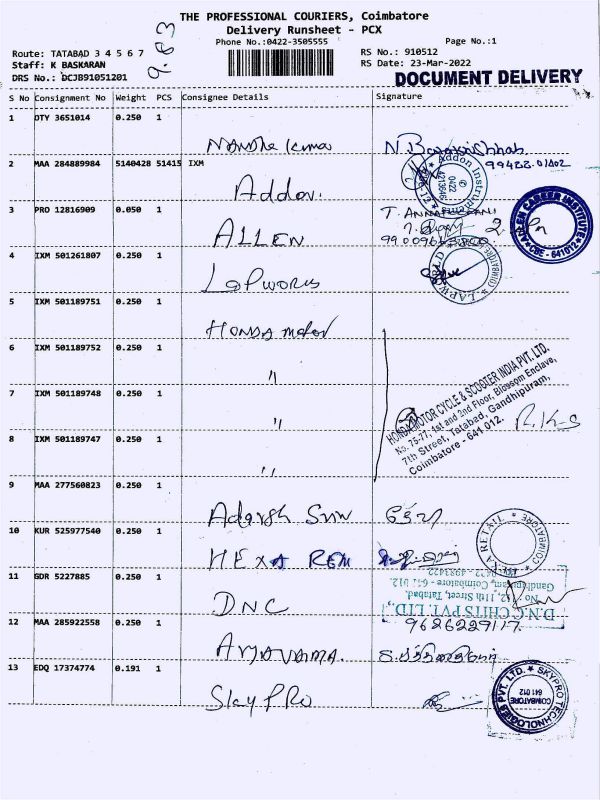 THE PROFESSIONAL COURIERS, Coimbatore
Delivery Runsheet - PCX
Phone No.:0422-3505555
Page No.:1
Route: TATABAD 3 4 5 6 7
Staff: K BASKARAN
DRS No.: DCJB91051201
9.63
RS No.: 910512
RS Date: 23-Mar-2022
DOCUMENT DELIVERY
S No Consignment No Weight PCS Consignee Details Signature
1 DTY 3651014 0.250 1
99422 01402
2 MAA 284889984 5140428 51415 IXM
Addon
Addon Instrument
0422
4213646
3 PRO 12816909 0.050 1
ALLEN
ALLEN CAREER INSTITUTE
CBE - 641012
4 IXM 501261807 0.250 1
Lapworks
COIMBATORE
5 IXM 501189751 0.250 1
Honda motor
6 IXM 501189752 0.250 1
"
HONDA MOTOR CYCLE & SCOOTER INDIA PVT. LTD.
No. 75-77, 1st and 2nd Floor, Blossom Enclave,
7th Street, Tatabad, Gandhipuram,
Coimbatore - 641 012.
R.K.S
7 IXM 501189748 0.250 1
"
8 IXM 501189747 0.250 1
"
9 MAA 277560823 0.250 1
Adarsh
10 KUR 525977540 0.250 1
HEXA
KA RETAIL
COIMBATORE
11 GDR 5227885 0.250 1
DNC
D.N.C CHITS PVT. LTD.,
No: 112, 11th Street, Tatabad,
Gandhipuram, Coimbatore - 641 012.
9626229117
12 MAA 285922558 0.250 1
13 EDQ 17374774 0.191 1
Sky PRO
SKYPRO TECHNOLOGIES PVT. LTD.
COIMBATORE
641 012